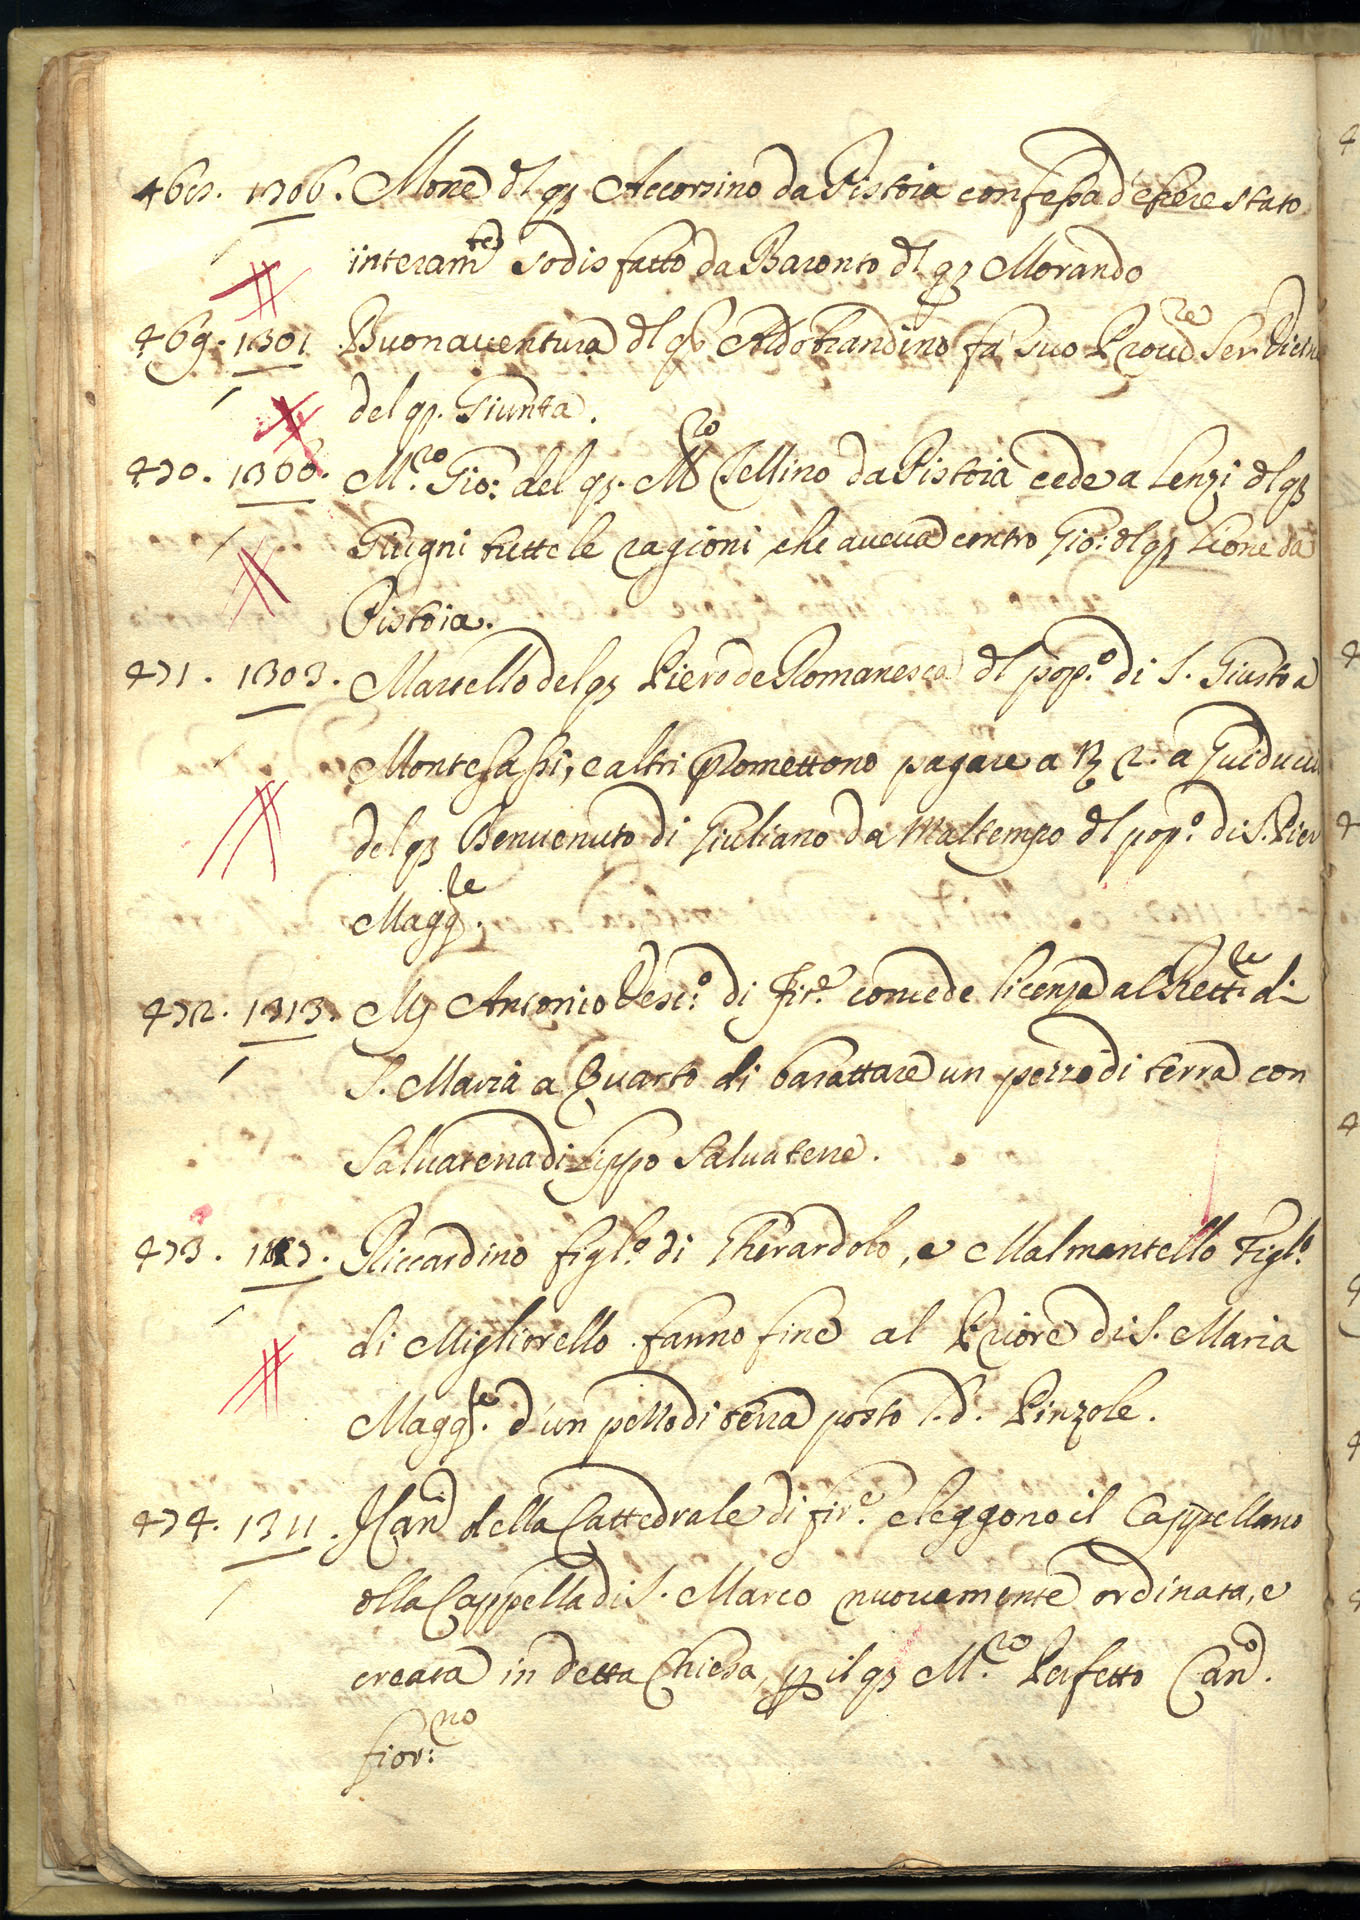 468. 1306. Mone dl qz Accorsino da Pistoia confessa d'essere stato
interam.te sodisfatto da Baronto dl qz Morando
469. 1301 Buonaventura dl qz Aldobrandino fa suo Procu.re Ser
del qz. Giunta.
470. 1306. M.ro Gio: del qz. M.ro Sellino da Pistoia cede a Lenzi dl qz
Giugni tutte le ragioni che aveva contro Gio: dl qz Lione da
Pistoia.
471. 1303. Marsello del qz Piero de Romanesca dl pop.o di S. Giusto a
Montesassi, e altri promettono pagare a a Guiducci
del qz Benvenuto di Giuliano da Maltempo dl pop.o di S. Pier
Magg.re
472. 1313. M Antonio Vesc:o di Fir.e concede licenza al Rett.re di
S. Maria a Quarto di barattare un pezzo di terra con
Salvatena di Lippo Salvatene.
473. Riccardino figl.o di Gherardolo, e Malmantello Figl.o
di Migliorello fanno fine al Priore di S. Maria
Magg.re d'un pezzo di terra posto l. d. Pinzole.
474. 1311. I Can.i della Cattedrale di fir.e eleggono il Cappellano
dlla Cappella di S. Marco nuovamente ordinata, e
creata in detta Chiesa p il qz M.ro Perfetto Can.o
fior:no